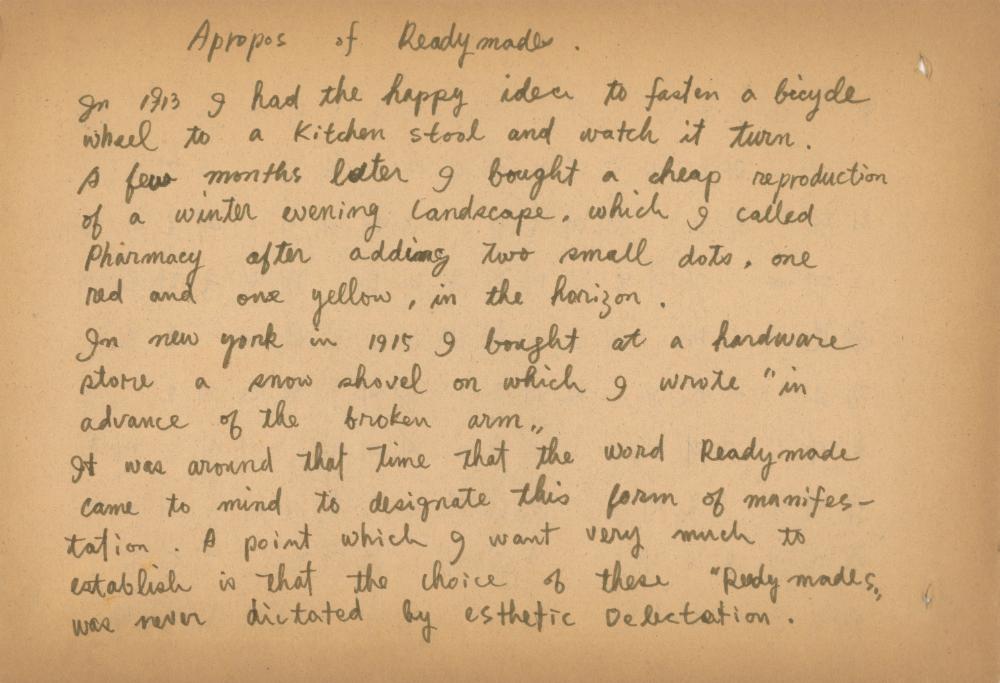 Apropos of Readymades.
In 1913 I had the happy idea to fasten a bicycle
wheel to a Kitchen stool and watch it turn.
A few months later I bought a cheap reproduction
of a winter evening landscape, which I called
Pharmacy after adding two small dots, one
red and one yellow, in the horizon.
In new york in 1915 I bought at a hardware
store a snow shovel on which I wrote "in
advance of the broken arm„
It was around that time that the word Readymade
came to mind to designate this form of manifes-
tation. A point which I want very much to
establish is that the choice of these "Readymades„
was never dictated by esthetic Delectation.